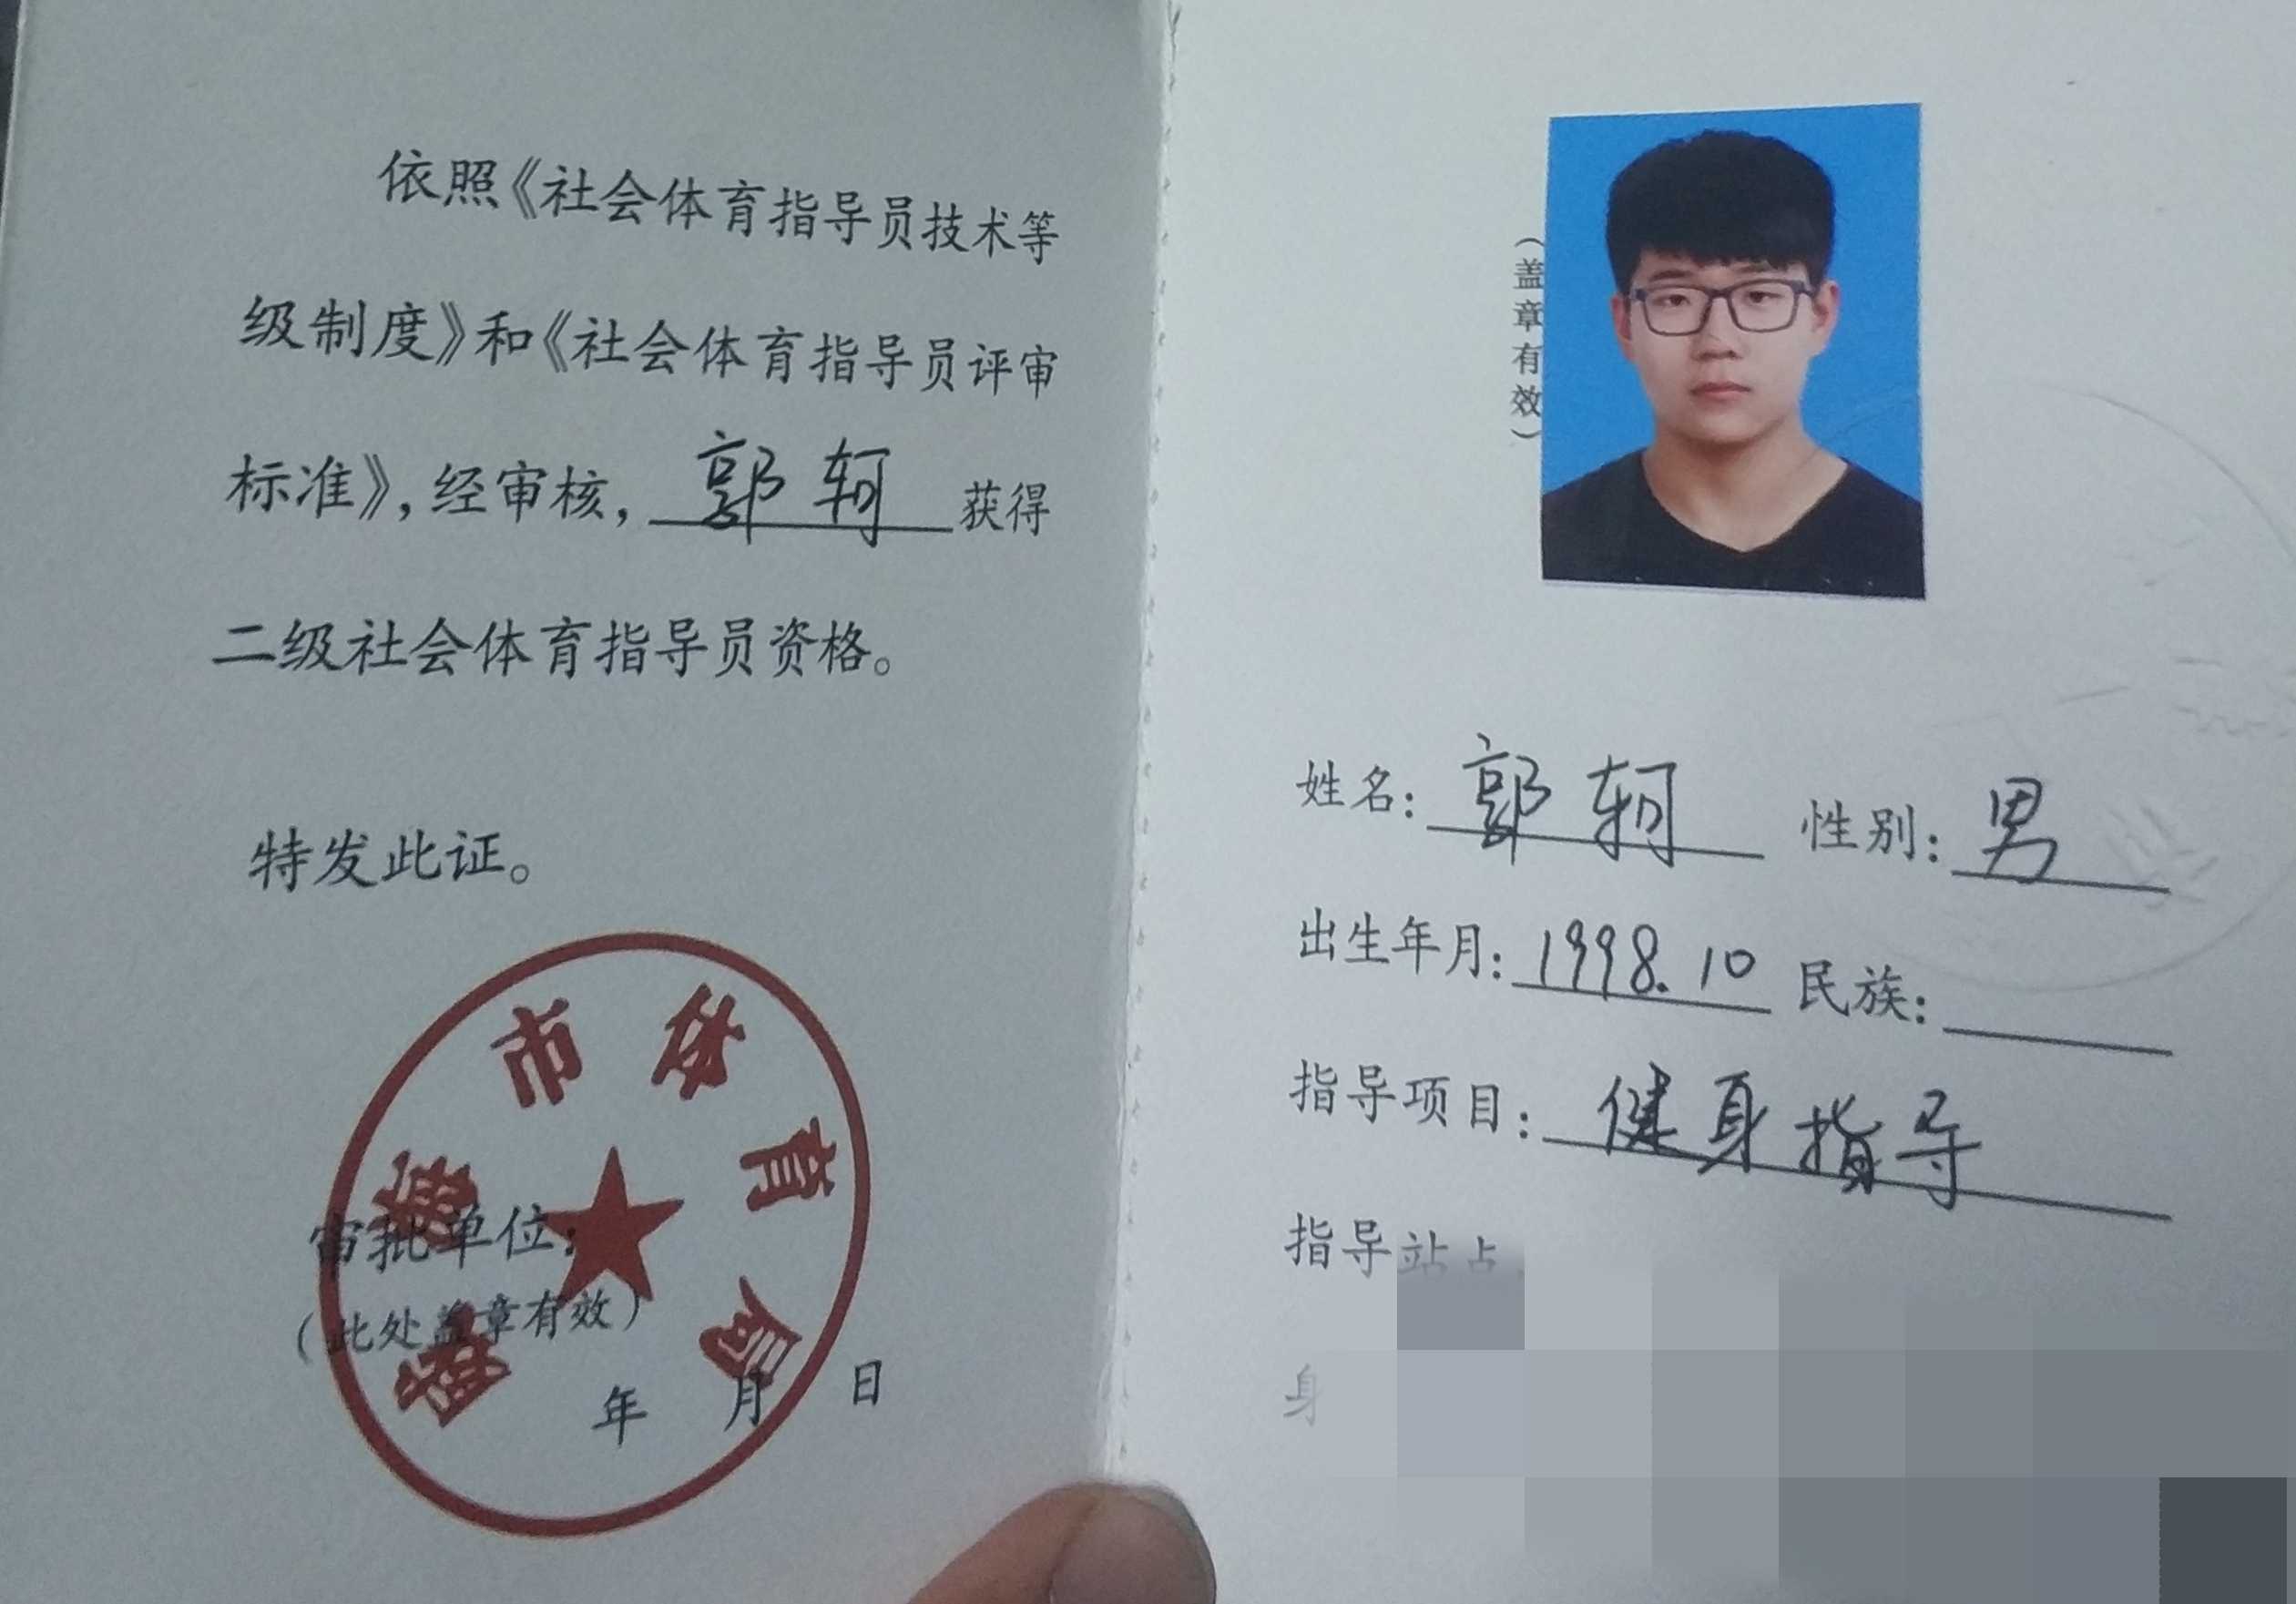 依照《社会体育指导员技术等
级制度》和《社会体育指导员评审
标准》，经审核，郭轲获得
二级社会体育指导员资格。
特发此证。
市体育局
审批单位：
（此处盖章有效）
年 月 日
（盖章有效）
姓名：郭轲 性别：男
出生年月：1998.10 民族：
指导项目：健身指导
指导站点
身